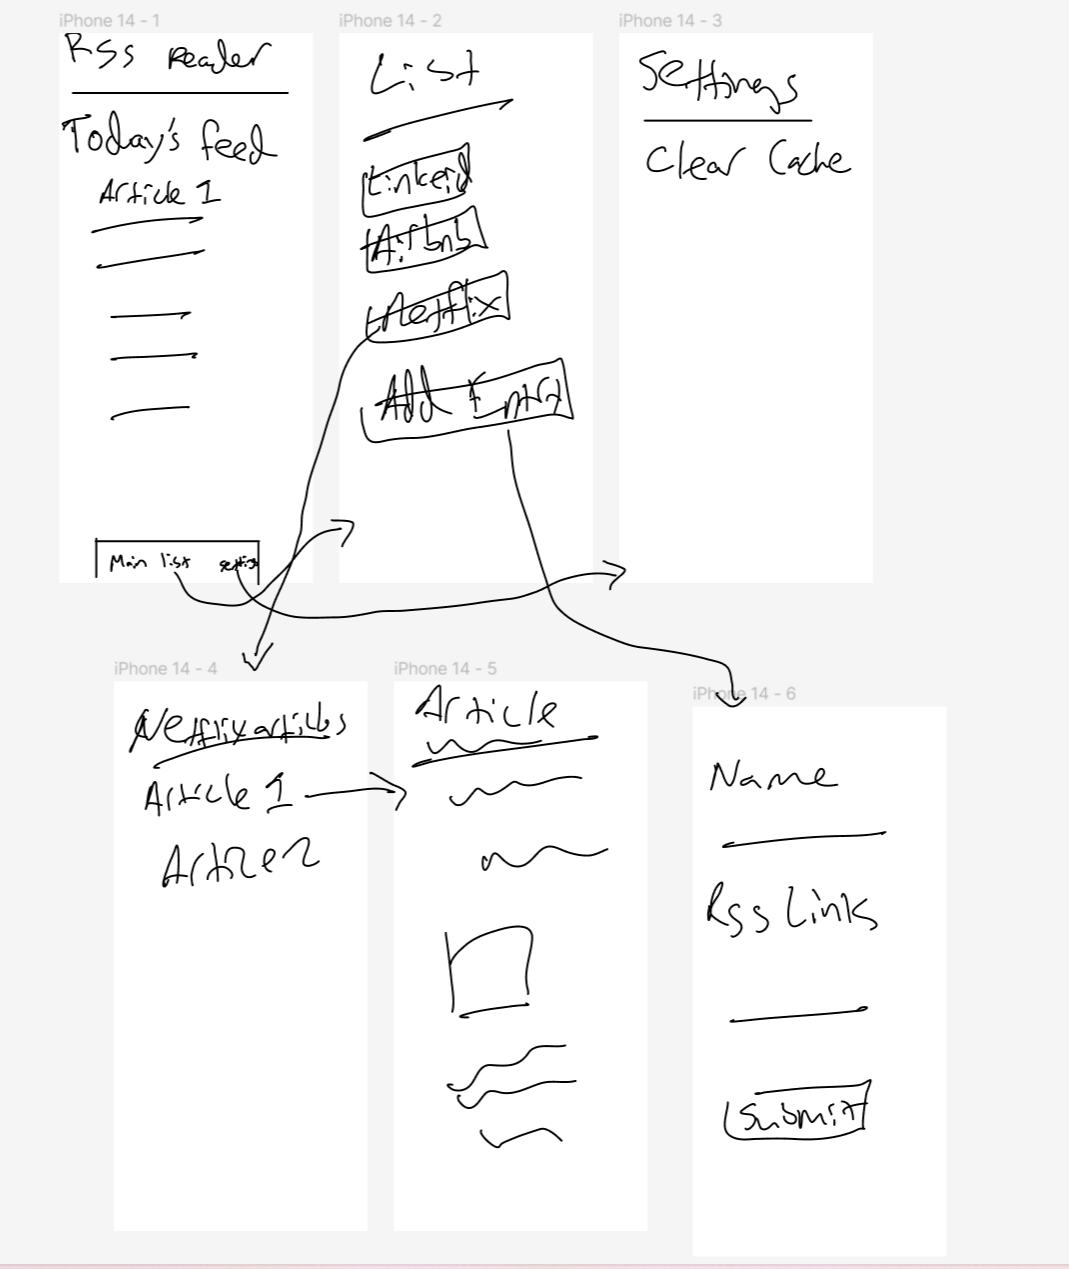 iPhone 14 - 1
RSS Reader
Today's feed
Article 1
Main list setting
iPhone 14 - 2
List
Linkerd
Airbnb
Netflix
Add Entry
iPhone 14 - 3
Settings
Clear Cache
iPhone 14 - 4
Netflix articles
Article 1
Article 2
iPhone 14 - 5
Article
iPhone 14 - 6
Name
Rss Links
Submit